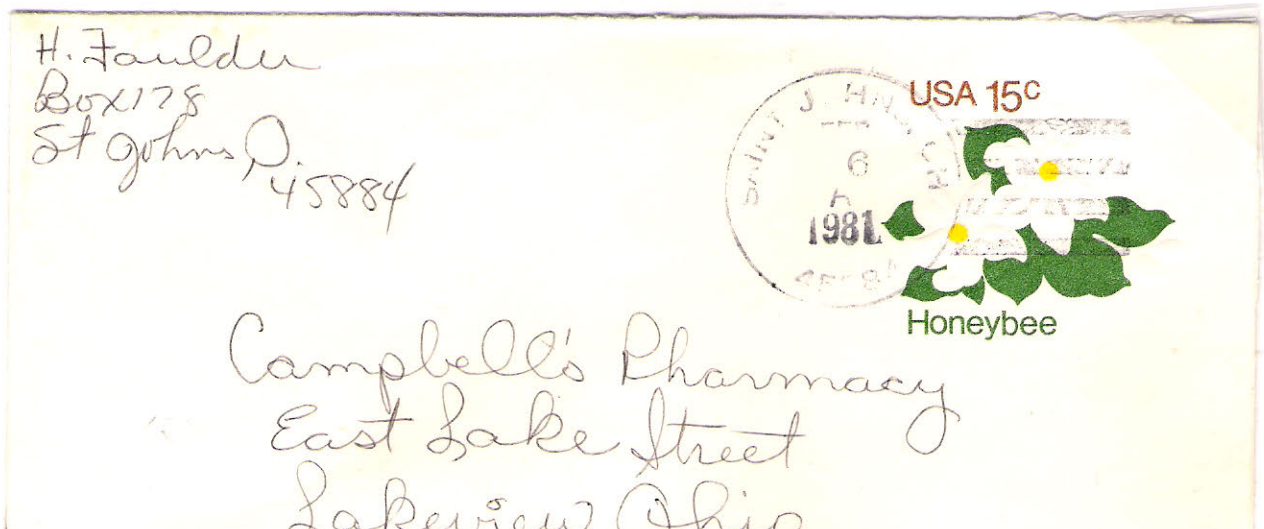 H. Faulder
Box 178
St Johns, O.
45884
SAINT J HNS, OH
6
1981
USA 15c
Honeybee
Campbell's Pharmacy
East Lake Street
Lakeview Ohio